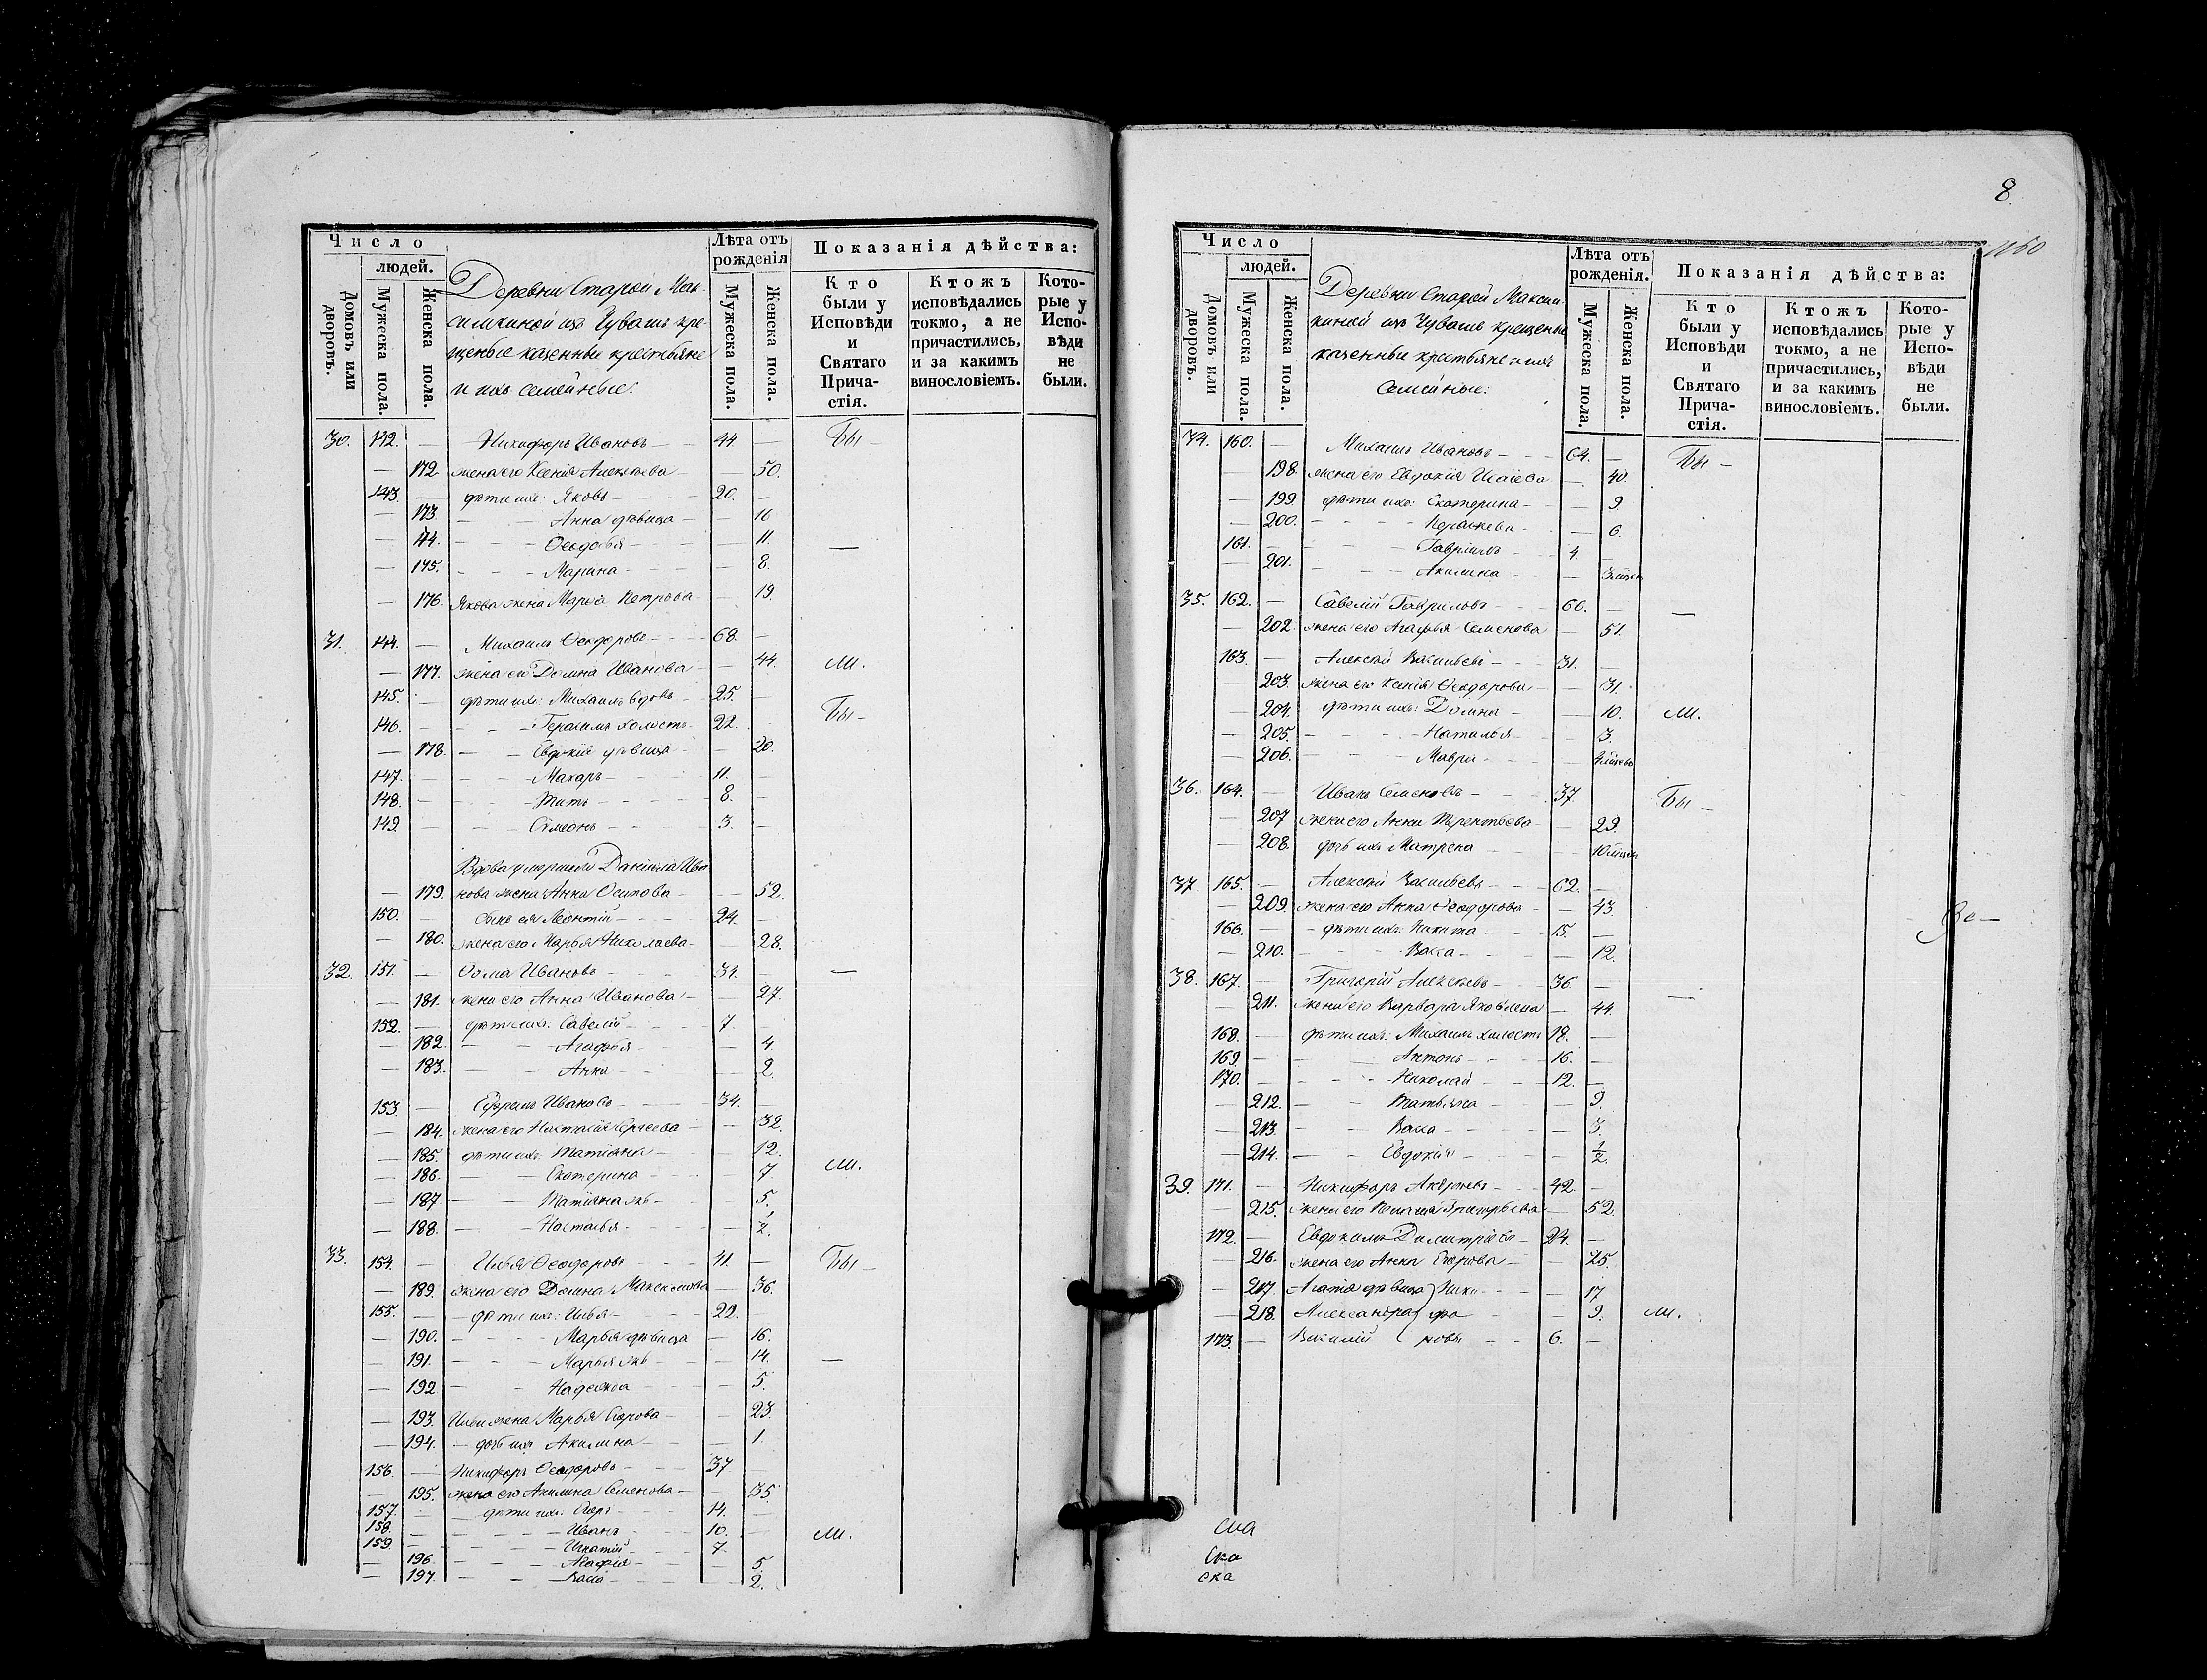 Число
людей.
Домовъ или дворовъ.
Мужеска пола.
Женска пола.
Деревни Старой Мак-
симкиной изъ Чувашъ кре-
щеные казенные крестьяне
и ихъ семейные:
Лѣта отъ
рожденія
Мужеска пола.
Женска пола.
Показанія дѣйства:
Кто
были у
Исповѣди
и
Святаго
Прича-
стія.
Ктожъ
исповѣдались
токмо, а не
причастились,
и за какимъ
винословіемъ.
Кото-
рые у
Испо-
вѣди
не
были.
30. 142. — Никифоръ Ивановъ — 44 — Бы —
— 172 жена его Ксенія Алексѣева — — 50.
143. — дѣти ихъ: Яковъ — 20. —
— 173. — Анна дѣвица — — 16
— 174. — Ѳеодосья — — 11 —
— 175. — Марина — — 8.
— 176. Якова жена Марѳа Петрова — — 19.
31. 144. — Михаилъ Ѳеодоровъ — 68. —
— 177. жена его Домна Иванова — — 44. ли.
145. — дѣти ихъ: Михаилъ вдовъ — 25. —
146. — Герасимъ холостъ — 22. Бы —
— 178. — Евдокія дѣвица — 20.
147. — Макаръ — 11. —
148. — Титъ — 8. —
149. — Сѵмеонъ — 3. —
Вдова умершаго Даніила Ива
— 179. нова жена Анна Осипова — — 52.
150. — сынъ ея Леонтій — 24. —
— 180. жена его Марья Николаева — — 28.
32. 151. — Ѳома Ивановъ — 34. — —
— 181. жена его Анна Иванова — — 27.
152. — дѣти ихъ: Савелій — 7. —
— 182. — Агафья — — 4
— 183. — Анна — — 2.
153. — Ефремъ Ивановъ — 34. —
— 184. жена его Настасія — — 32.
— 185. дѣти ихъ: Татіана — — 12.
— 186. — Екатерина — — 7. ли.
— 187. — Татіана — — 5.
— 188. — Настасья — — 1/2.
33. 154. — Илья Ѳеодоровъ — 41. — Бы —
— 189. жена его Домна Максимова — — 36.
155. — дѣти ихъ: Илья — 22. —
— 190. — Марья дѣвица — 16.
— 191. — Марья — — 14. —
— 192 — Надежда — — 5.
— 193. Ильи жена Марья Егорова — — 23.
— 194. — дочь ихъ Акилина — — 1.
156. — Никифоръ Ѳеодоровъ — 37. —
— 195. жена его Акилина Семенова — — 35
157. — дѣти ихъ: Егоръ — 14. —
158. — Иванъ — 10. — ли.
159. — Игнатій — 7.
— 196. — Агафія — — 5
— 197. — Васса — — 2.
8.
1160
Число
людей.
Домовъ или дворовъ.
Мужеска пола.
Женска пола.
Деревни Старой Макси-
киной изъ Чувашъ крещеные
казенные крестьяне и ихъ
семейные:
Лѣта отъ
рожденія.
Мужеска пола.
Женска пола.
Показанія дѣйства:
Кто
были у
Исповѣди
и
Святаго
Прича-
стія.
Ктожъ
исповѣдались
токмо, а не
причастились,
и за какимъ
винословіемъ.
Кото-
рые у
Испо-
вѣди
не
были.
34. 160. — Михаилъ Ивановъ — 64. — Бы —
— 198. жена его Евдокія Исаева — 40.
— 199 дѣти ихъ: Екатерина — — 9.
— 200. — — 6.
161. — Гавріилъ — 4. —
— 201. — Акилина — — 3
35. 162. — Савелій Гавриловъ — 60. — —
— 202. жена его Агафья Семенова — 51.
163. — Алексѣй Васильевъ — 31. —
— 203. жена его Ксенія Ѳеодорова — — 31.
— 204. дѣти ихъ: Домна — — 10. ли.
— 205. — Наталья — — 3.
— 206. — Мавра —
36. 164. — Иванъ Семеновъ — 37. Бы —
— 207 жена его Анна Терентьева — — 29.
— 208. дочь ихъ Матрена — — 10
37. 165. — Алексѣй Васильевъ — 62. —
— 209. жена его Анна Ѳеодорова — — 43
166. — дѣти ихъ: Никита — 15. —
— 210. — Васса — — 12.
38. 167. — Григорій Алексѣевъ — 36. — —
— 211. жена его Варвара Яковлева — 44.
168. — дѣти ихъ: Михаилъ холостъ 18. —
169. — Антонъ — 16. —
170. — Николай — 12. —
— 212. — Татьяна — — 9.
— 213. — Васса — — 3.
— 214. — Евдокія — — 1/2.
39. 171. — Никифоръ — 42. —
— 215. жена его Григорьева — 52.
172. — Евдокимъ Димитріевъ — 24. —
— 216. жена его Анна Егорова — — 25.
— 217. Агафія дѣвица } Ники — — 17
— 218. Александра } фо — — 9. ли.
173. — Василій } ровы — 6. —
ска
ска